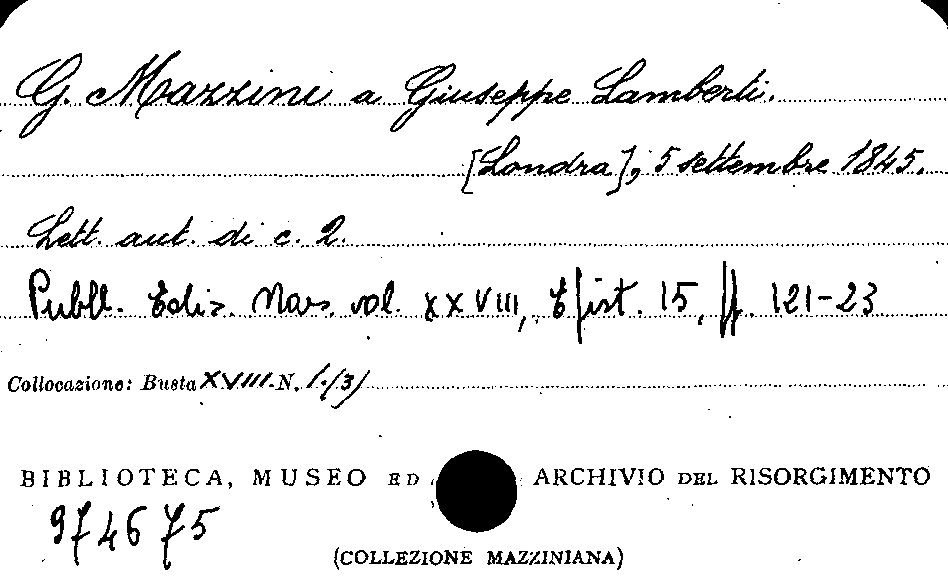 G. Mazzini a Giuseppe Lamberti.
[Londra], 5 settembre 1845.
Lett. aut. di c. 2.
Pubbl. Ediz. Naz. vol. XXVIII, Epist. 15, pp. 121-23
Collocazione: Busta XVIII N. 1.(3)
BIBLIOTECA, MUSEO ED ARCHIVIO DEL RISORGIMENTO
974675
(COLLEZIONE MAZZINIANA)